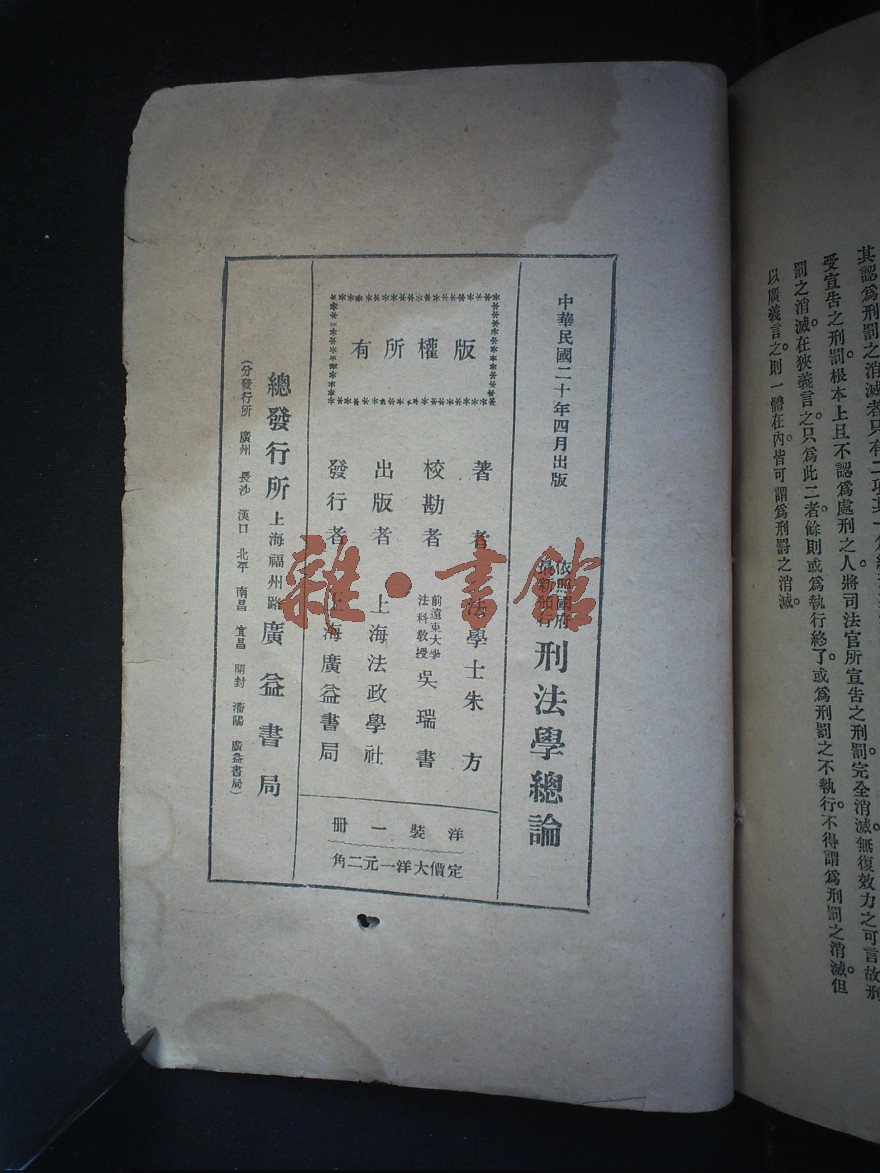 其認爲刑罰之消滅者只有二項其一
受宣告之刑罰。根本上且不認爲處刑之人將司法官所宣告之刑罰。完全消滅。無復效力之可言故刑
罰之消滅在狹義言之。只爲此二者餘則或爲執行終了。或爲刑罰之不執行。不得謂爲刑罰之消滅。但
以廣義言之。則一體在內。皆可謂爲刑罰之消滅。
中華民國二十年四月出版
依照國府
最新頒行
刑法學總論
版權所有
著者 法學士朱方
校勘者 前遠東大學法科教授 吳瑞書
出版者 上海法政學社
發行者 上海廣益書局
洋裝一冊
定價大洋一元二角
總發行所 上海福州路 廣益書局
(分發行所 廣州 長沙 漢口 北平 南昌 宜昌 開封 瀋陽 廣益書局)
雜·書館